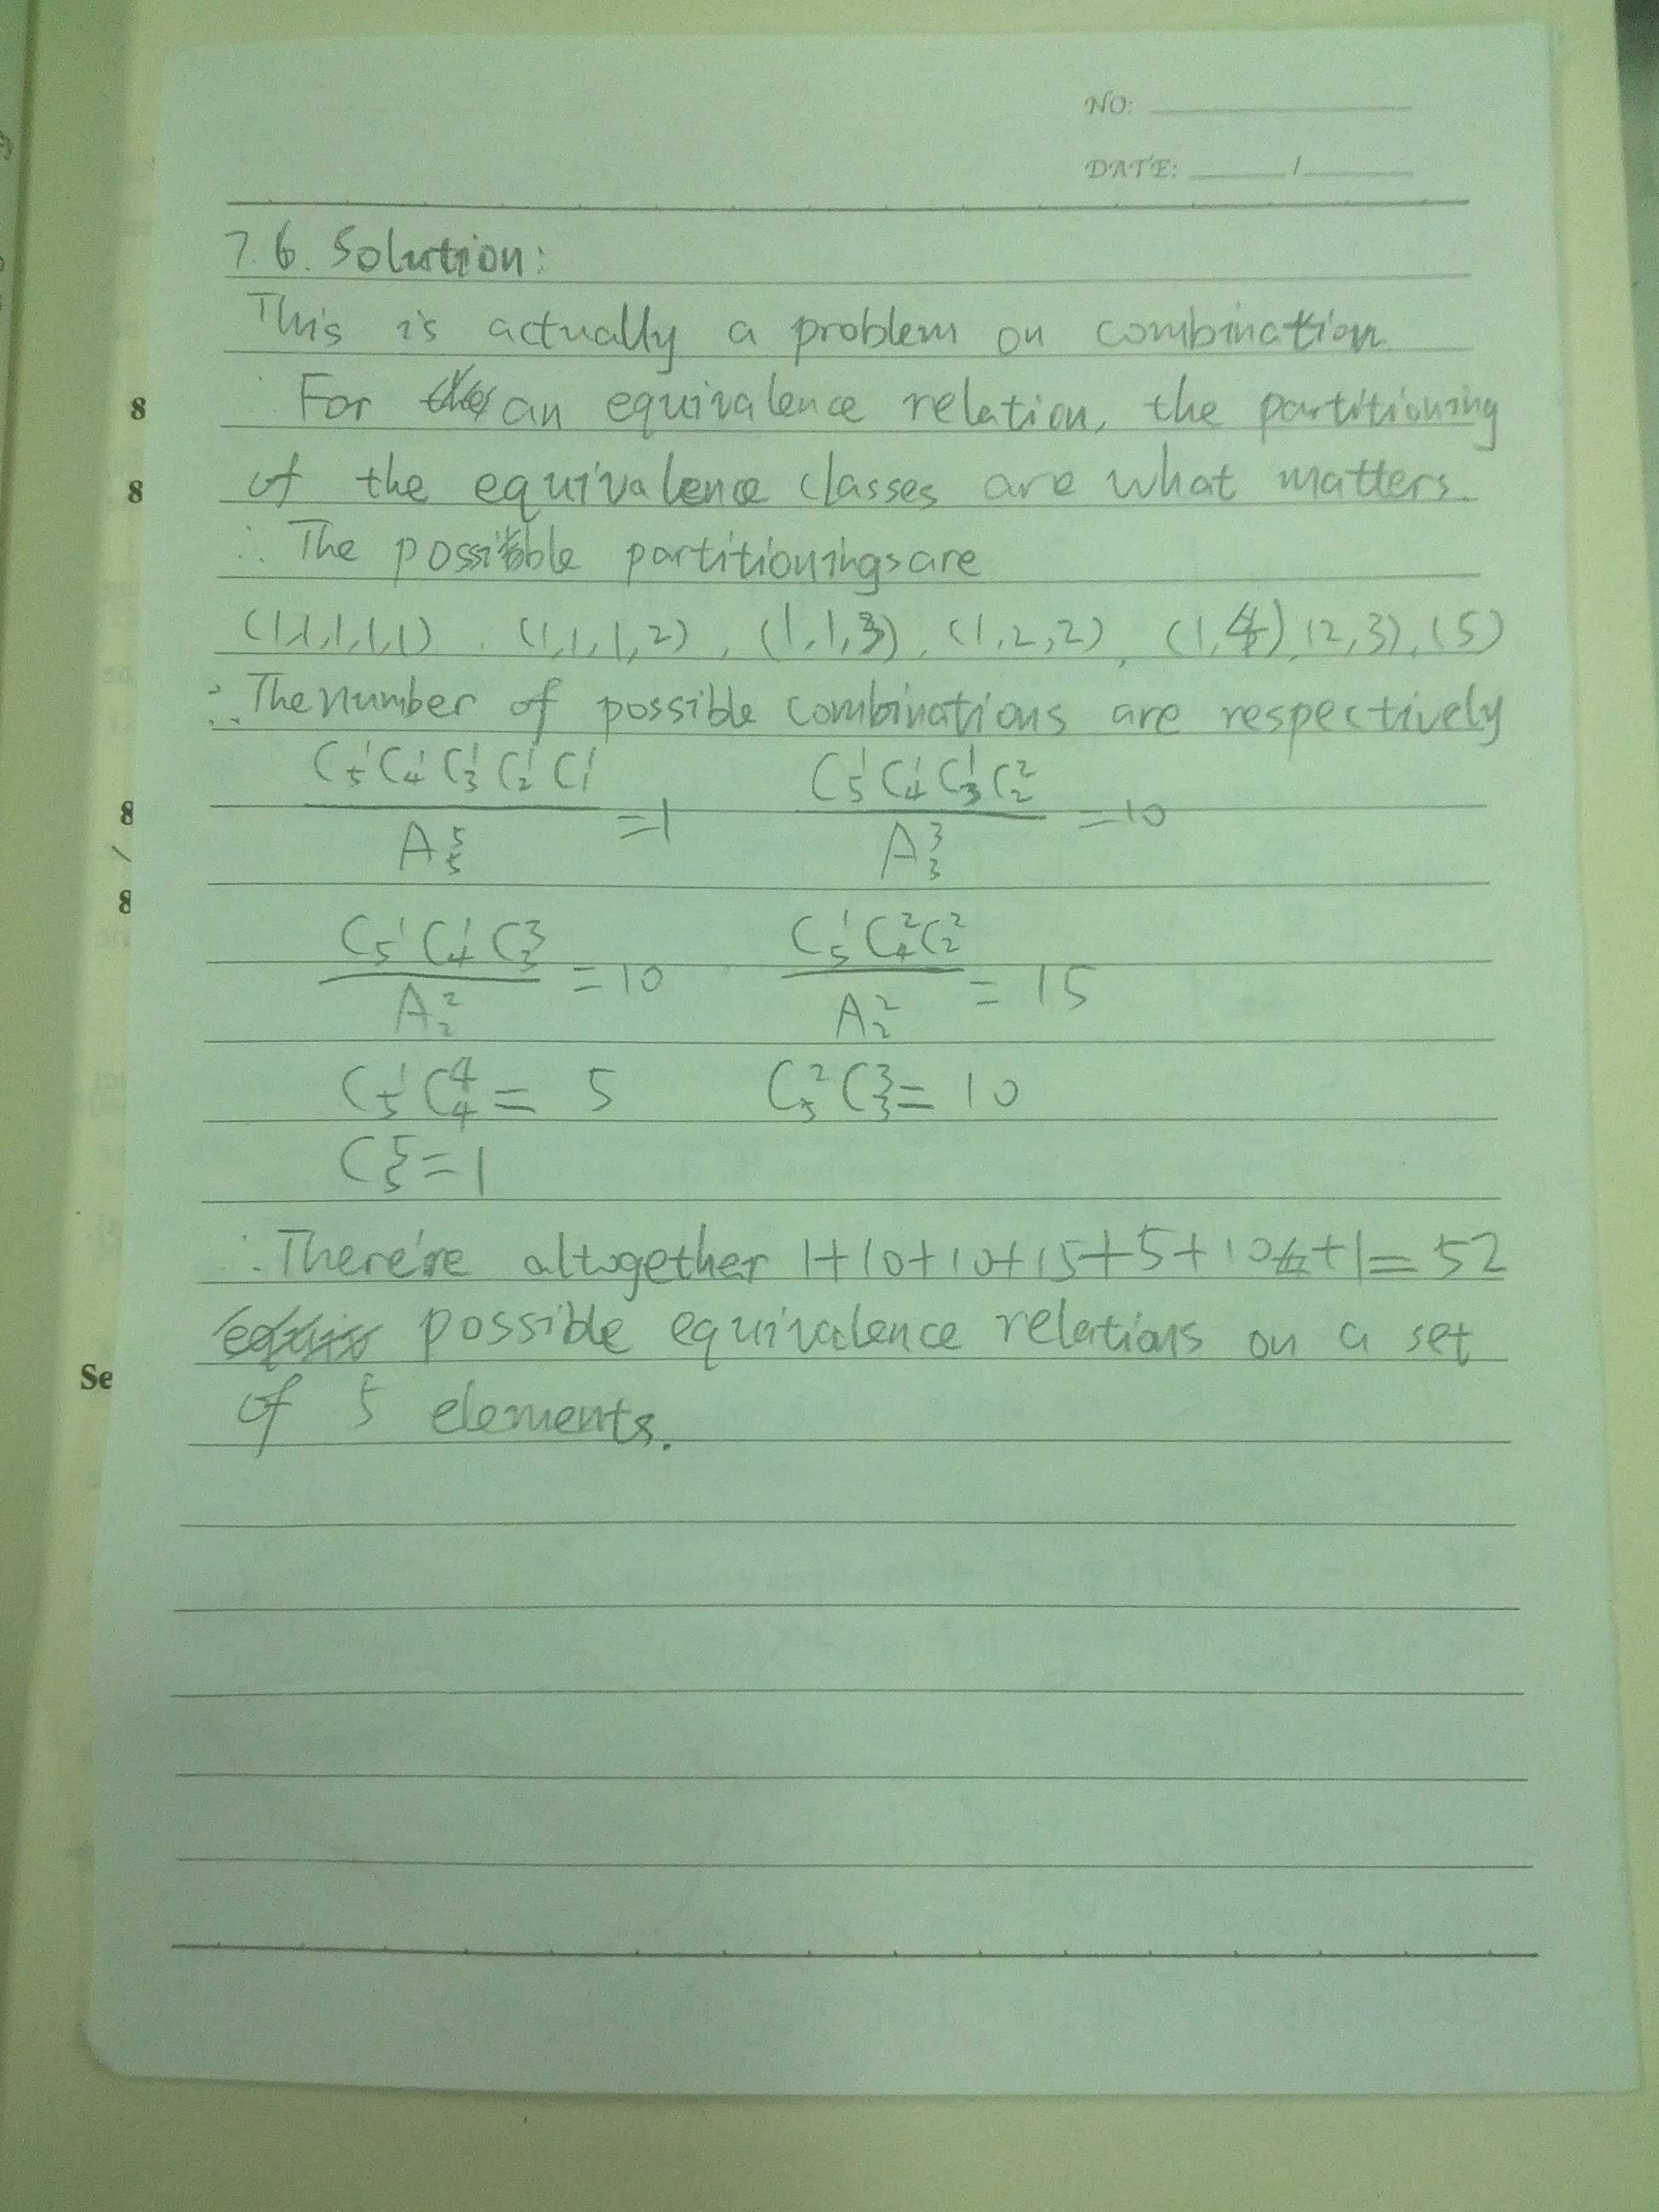 NO:
DATE: /
7.6. Solution:
This is actually a problem on combination
∵ For an equivalence relation, the partitioning
of the equivalence classes are what matters.
∴ The possible partitionings are
(1,1,1,1,1), (1,1,1,2), (1,1,3), (1,2,2), (1,4), (2,3), (5)
∴ The number of possible combinations are respectively
C₅¹C₄¹C₃¹C₂¹C₁¹ / A₅⁵ = 1 C₅¹C₄¹C₃¹C₂² / A₃³ = 10
C₅¹C₄¹C₃³ / A₂² = 10 C₅¹C₄²C₂² / A₂² = 15
C₅¹C₄⁴ = 5 C₅²C₃³ = 10
C₅⁵ = 1
∴ There're altogether 1+10+10+15+5+10+1=52
possible equivalence relations on a set
of 5 elements.
8
8
8
/
8
Se